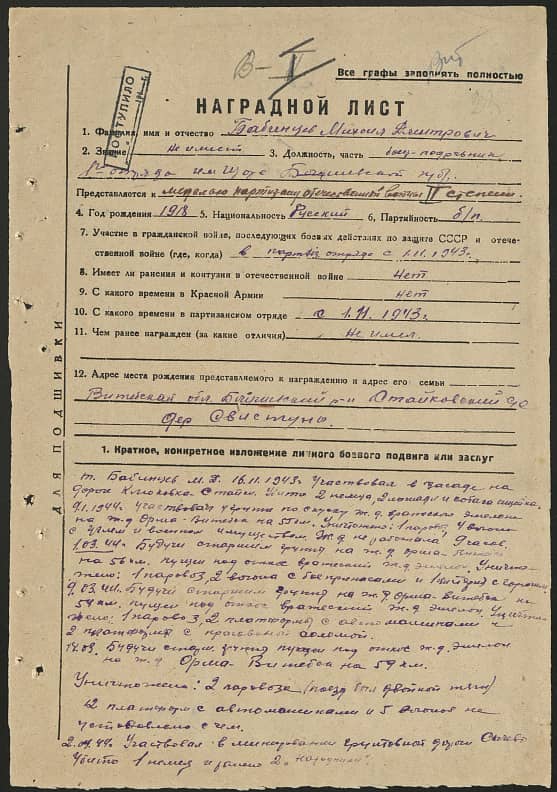 В-II
Все графы заполнять полностью
ПОСТУПИЛО
НАГРАДНОЙ ЛИСТ
1. Фамилия, имя и отчество Бабинцев Михаил Дмитрович
2. Звание не имеет 3. Должность, часть боец-подрывник
1го отряда им Щорса
Представляется к медалью партизану отечественной войны II степени
4. Год рождения 1918 5. Национальность Русский 6. Партийность б/п.
7. Участие в гражданской войне, последующих боевых действиях по защите СССР и отече-
ственной войне (где, когда) в отряде с 1.11.1943г.
8. Имеет ли ранения и контузии в отечественной войне нет
9. С какого времени в Красной Армии нет
10. С какого времени в партизанском отряде с 1.11.1943г.
11. Чем ранее награжден (за какие отличия) не имел.
12. Адрес места рождения представляемого к награждению и адрес его семьи
обл. р-н Стайковский с/с
дер Свистуны
ДЛЯ ПОДШИВКИ
1. Краткое, конкретное изложение личного боевого подвига или заслуг
т. Бабинцев М.Д. 16.11.1943г. Участвовал в засаде на
дороге Стайки. Убито 2 немца, 2 лошади и
1.1944г. Участвовал в группе по спуску ж.д. вражеского эшелона
на ж.д Орша-Витебск на 55 км. Уничтожено: 1 паровоз, 4 вагона
с и военным имуществом. Ж.д не работала 9 часов.
1.03.44г. Будучи старшим группы на ж.д. Орша-
на 56 км. пущен под откос вражеский ж.д. эшелон. Уничто-
жено: 1 паровоз, 2 вагона с боеприпасами и 1
9.03.44г. Будучи старшим группы на ж.д Орша-Витебск на
54 км. пущен под откос вражеский ж.д. эшелон. Уничто-
жено: 1 паровоз, 2 платформы с автомашинами и
2 платформы с прессованной соломой.
14.03. Будучи старш. группы пущен под откос ж.д. эшелон
на ж.д Орша-Витебск на 59 км.
Уничтожено: 2 паровоза (поезд был двойной тяги)
2 платформ с автомашинами и 5 вагонов не
установлено с чем.
2.04.44г Участвовал в минировании грунтовой дороги
Убито 1 немец и ранено 2